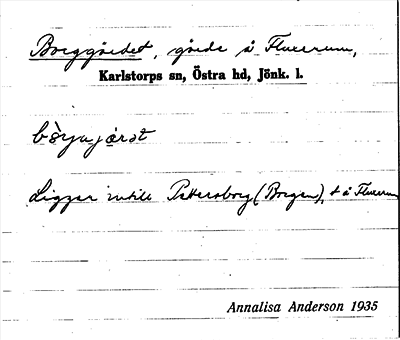 Borggärdet, gärde å Fluxerum,
Karlstorps sn, Östra hd, Jönk. l.
Ligger intill Petersborg (Borgen), t å Fluxerum
Annalisa Anderson 1935